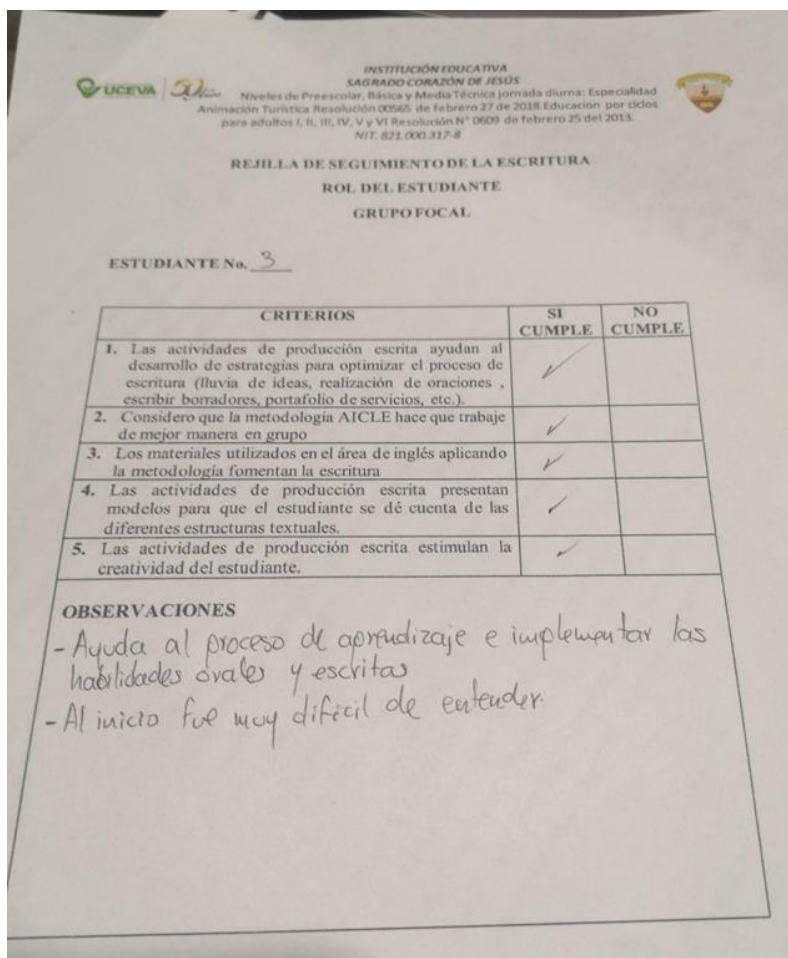 INSTITUCIÓN EDUCATIVA
SAGRADO CORAZÓN DE JESÚS
UCEVA 50 años
Niveles de Preescolar, Básica y Media Técnica jornada diurna: Especialidad
Animación Turística Resolución 00565 de febrero 27 de 2018. Educacion por ciclos
para adultos I, II, III, IV, V y VI Resolución N° 0609 de febrero 25 del 2013.
NIT. 821.000.317-8
REJILLA DE SEGUIMIENTO DE LA ESCRITURA
ROL DEL ESTUDIANTE
GRUPO FOCAL
ESTUDIANTE No. 3
CRITERIOS SI CUMPLE NO CUMPLE
1. Las actividades de producción escrita ayudan al
desarrollo de estrategias para optimizar el proceso de
escritura (lluvia de ideas, realización de oraciones ,
escribir borradores, portafolio de servicios, etc.).
2. Considero que la metodología AICLE hace que trabaje
de mejor manera en grupo
3. Los materiales utilizados en el área de inglés aplicando
la metodología fomentan la escritura
4. Las actividades de producción escrita presentan
modelos para que el estudiante se dé cuenta de las
diferentes estructuras textuales.
5. Las actividades de producción escrita estimulan la
creatividad del estudiante.
OBSERVACIONES
- Ayuda al proceso de aprendizaje e implementar las
habilidades orales y escritas
- Al inicio fue muy difícil de entender.